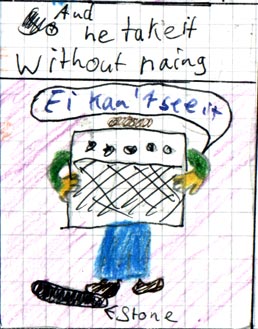 And
he take it
without naing
Ei kan't see it
Stone